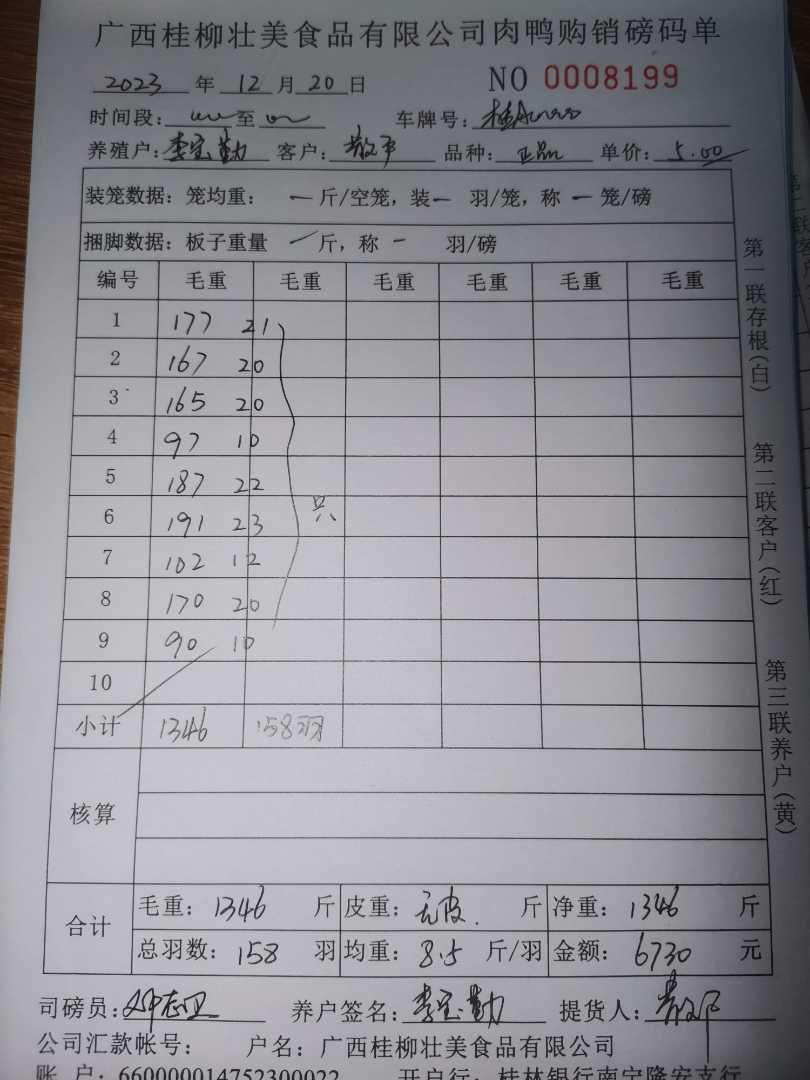 广西桂柳壮美食品有限公司肉鸭购销磅码单
2023 年 12 月 20 日 NO 0008199
时间段: 至 车牌号:
养殖户: 李宝勤 客户: 品种: 正品 单价: 5.00
装笼数据: 笼均重: 一 斤/空笼, 装一 羽/笼, 称 一 笼/磅
捆脚数据: 板子重量 一 斤, 称 一 羽/磅
编号 毛重 毛重 毛重 毛重 毛重 毛重
1 177 21
2 167 20
3 165 20
4 97 10
5 187 22
6 191 23 只
7 102 12
8 170 20
9 90 10
10
小计 1346 158羽
核算
合计
毛重: 1346 斤 皮重: 无皮. 斤 净重: 1346 斤
总羽数: 158 羽 均重: 8.5 斤/羽 金额: 6730 元
司磅员: 养户签名: 李宝勤 提货人:
公司汇款帐号: 户名: 广西桂柳壮美食品有限公司
账 户: 660000014752300022 开户行: 桂林银行南宁隆安支行
第一联存根(白)
第二联客户(红)
第三联养户(黄)